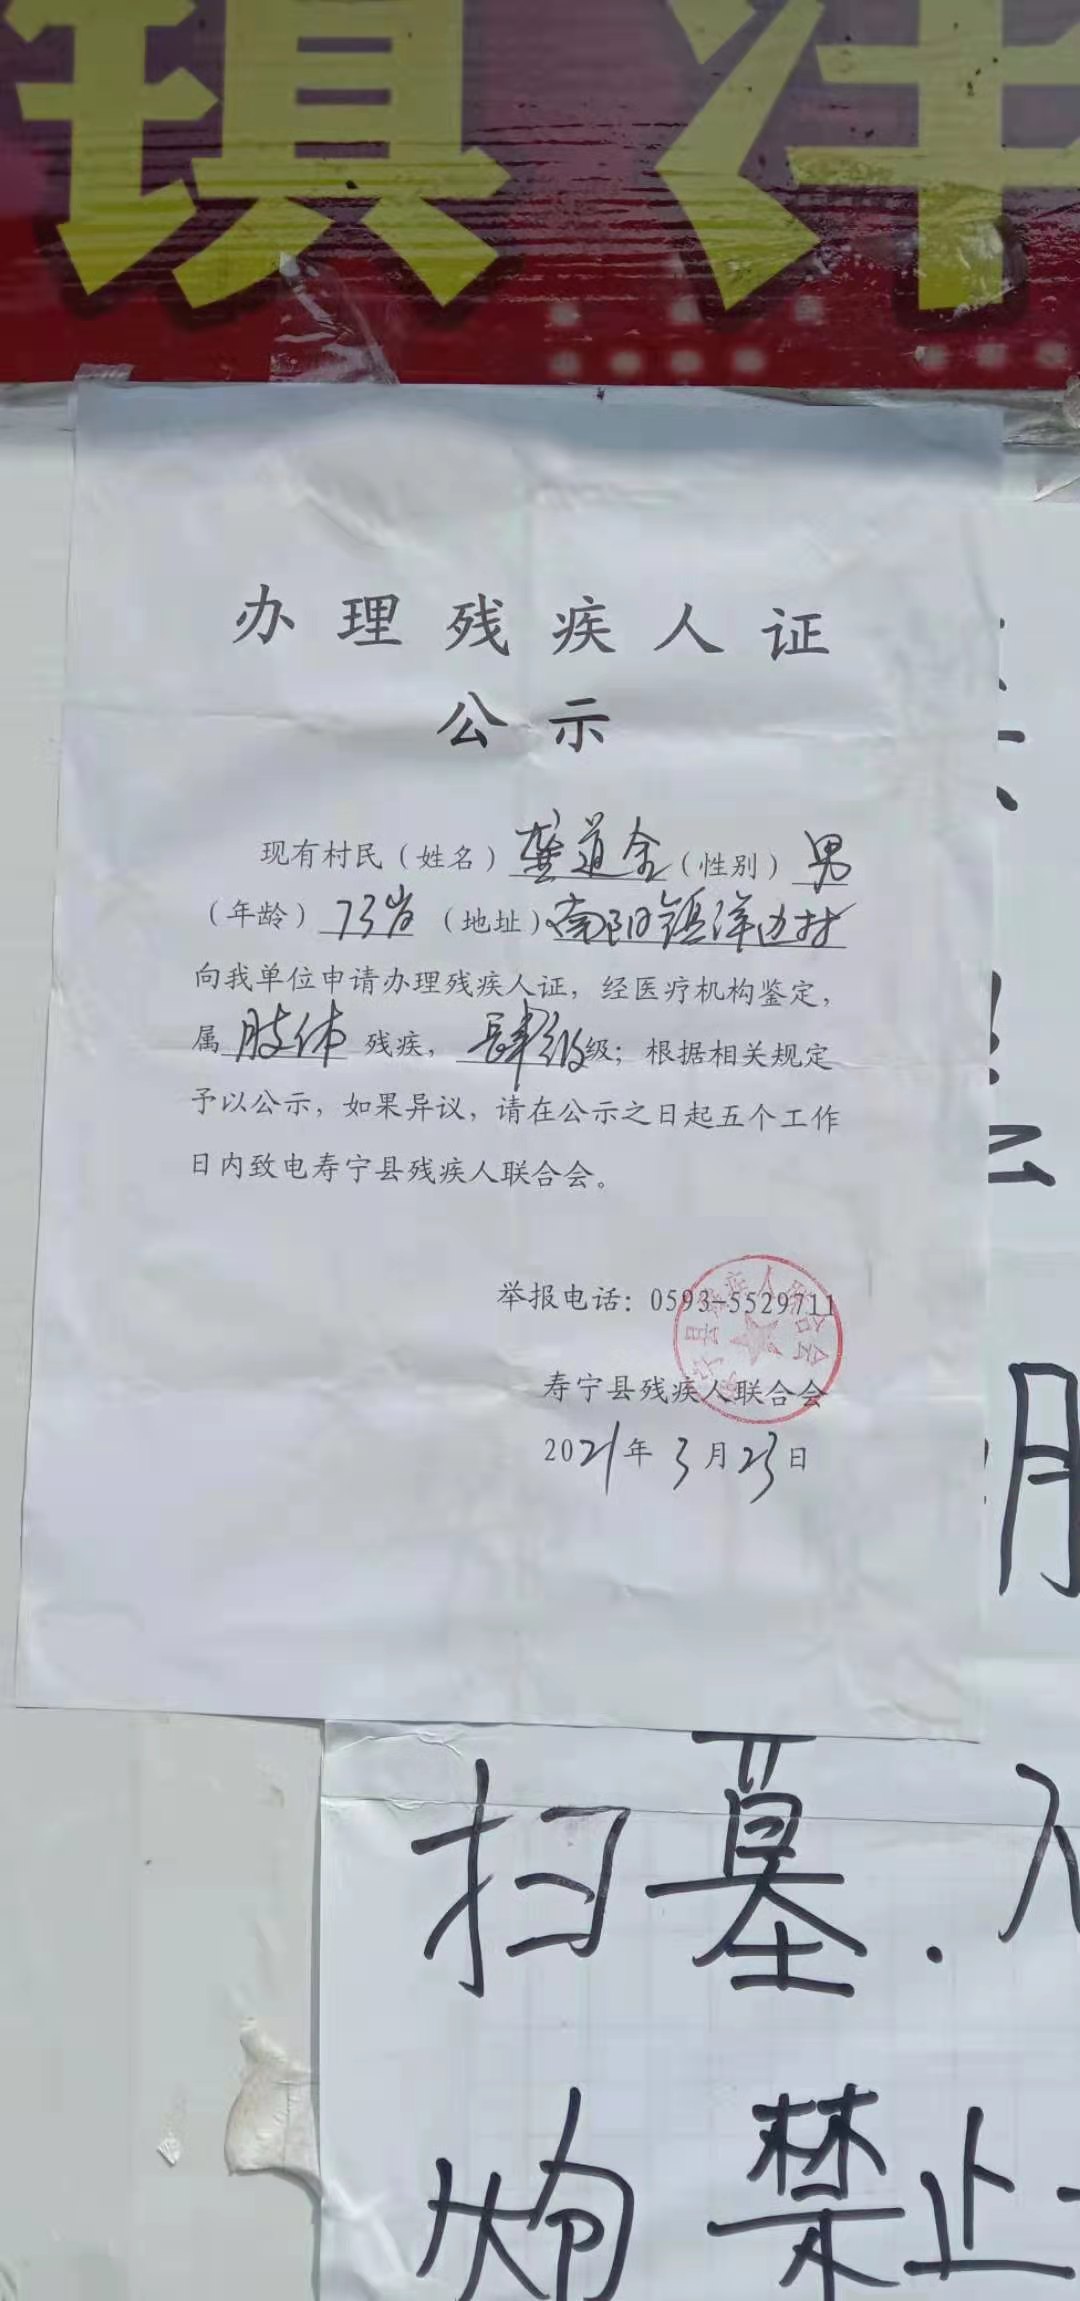 镇洋
办理残疾人证
公示
现有村民（姓名）龚道全（性别）男
（年龄）73岁（地址）南阳镇洋边村
向我单位申请办理残疾人证，经医疗机构鉴定，
属肢体残疾，肆级级；根据相关规定
予以公示，如果异议，请在公示之日起五个工作
日内致电寿宁县残疾人联合会。
举报电话：0593-5529711
寿宁县残疾人联合会
寿宁县残疾人联合会
2021年3月23日
明
扫墓.
炮禁止